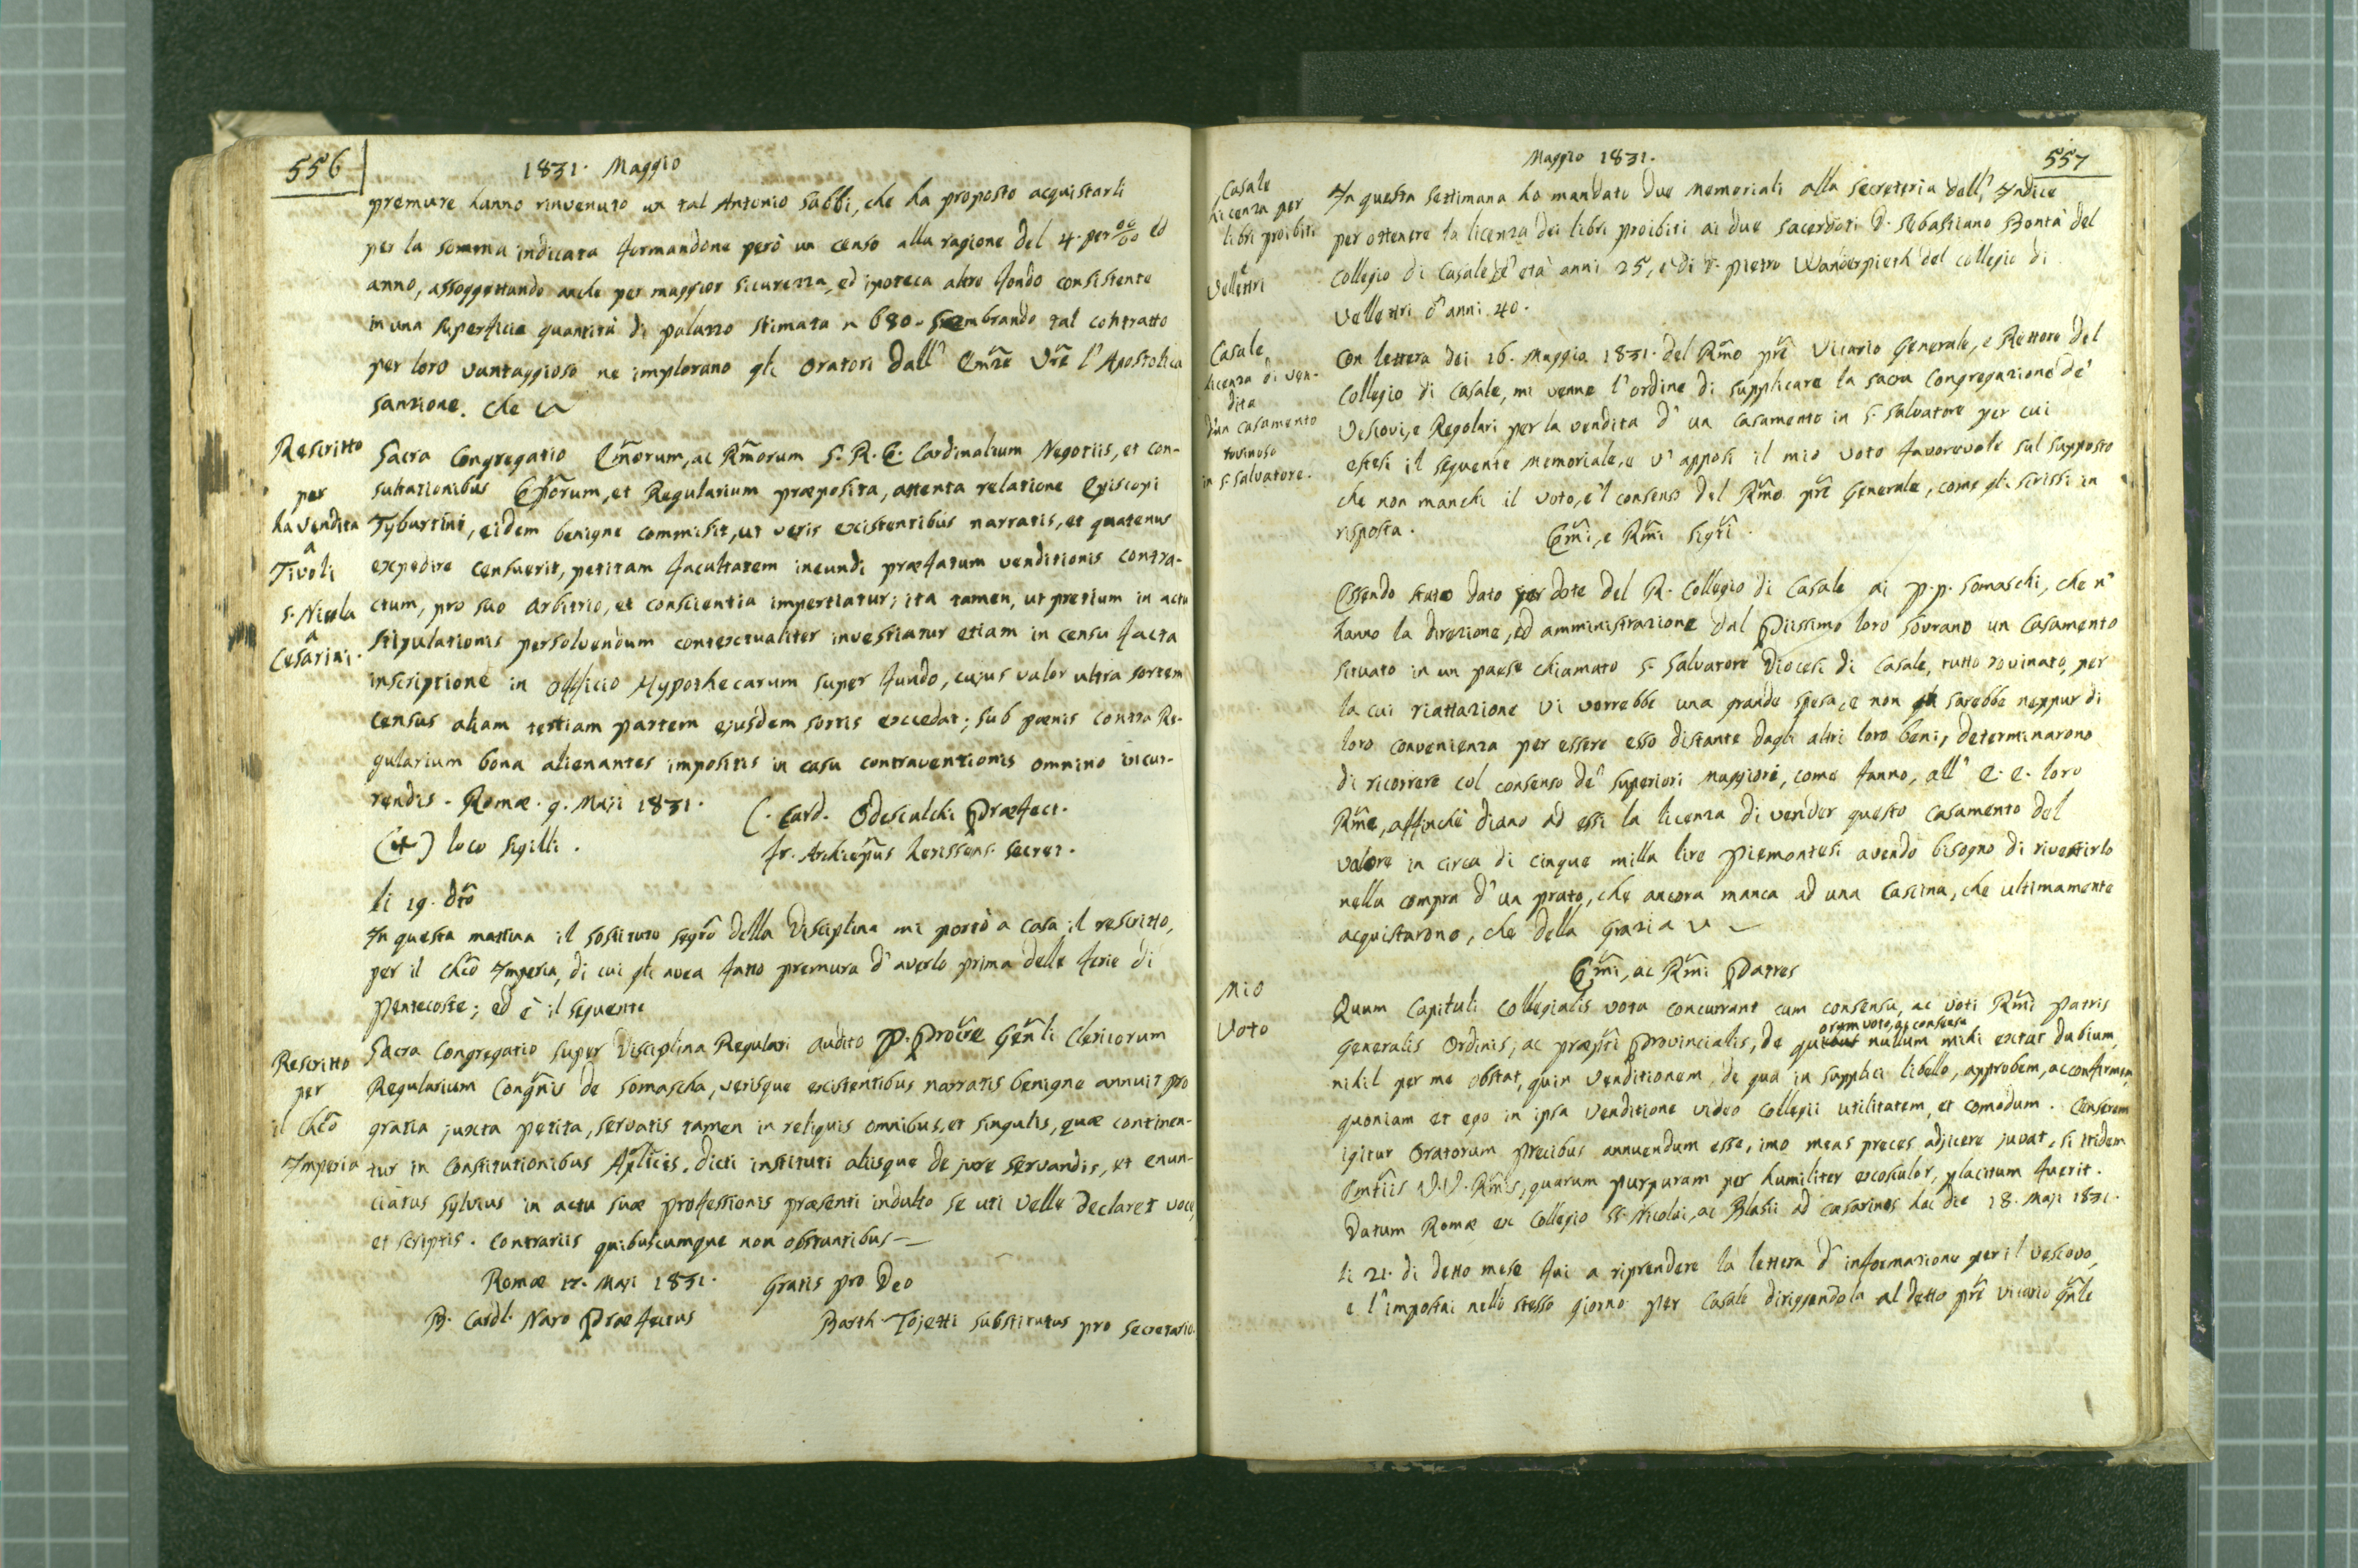 556
1831. Maggio
premure hanno rinvenuto un tal Antonio Sabbi, che ha proposto acquistarli
per la somma indicata formandone però un censo alla ragione del 4. per 00/00 ed
anno, assoggettando anche per maggior sicurezza, ed ipoteca altro fondo consistente
in una superficie quantità di palazzo stimata 680. Sembrando tal contratto
per loro vantaggioso ne implorano gli Oratori dall' Emze Vre l'Apostolica
sanzione. Che
Rescritto
per
la vendita
a
Tivoli
S. Nicola
a
Cesarini.
Sacra Congregatio Emorum, ac Rmorum S. R. E. Cardinalium Negotiis, et con-
sultationibus Eporum, et Regularium præposita, attenta relatione Episcopi
Tyburtini, eidem benigne commisit, ut veris existentibus narratis, et quatenus
expedire censuerit, petitam facultatem ineundi præfatum venditionis contra-
ctum, pro suo arbitrio, et conscientia impertiatur; ita tamen, ut pretium in actu
stipulationis persolvendum contextualiter investiatur etiam in censu facta
inscriptione in Officio Hypothecarum super fundo, cujus valor ultra sortem
census aliam tertiam partem ejusdem sortis excedat; sub pœnis contra Re-
gularium bona alienantes impositis in casu contraventionis omnino incur-
rendis. Romæ. 9. Maji 1831.
C. Card. Odescalchi Præfect.
(+) loco sigilli.
Jr. Archiepus Secret.
li 19. dto
In questa mattina il sostituto segro della Disciplina mi portò a casa il rescritto,
per il Chco Imperia, di cui gli avea fatto premura d'averlo prima delle ferie di
Pentecoste; ed è il seguente
Rescritto
per
il Chco
Imperia
Sacra Congregatio super Disciplina Regulari audito P. Procre Genli Clericorum
Regularium Congnis de Somascha, verisque existentibus narratis benigne annuit pro
gratia juxta petita, servatis tamen in reliquis omnibus, et singulis, quæ continen-
tur in Constitutionibus Aplicis. dicti instituti aliisque de jure servandis, et enun-
ciatus Sylvius in actu suæ professionis præsenti indulto se uti velle declaret voce,
et scriptis. Contrariis quibuscumque non obstantibus —
Romæ 17. Maji 1831. Gratis pro Deo
B. Cardl. Naro Præfectus
Barth Tojetti Substitutus pro Secretario.
Maggio 1831.
557
Casale
Licenza per
libri proibiti
e
Velletri
In questa settimana ho mandato due memoriali alla Secreteria dell' Indice
per ottenere la licenza dei libri proibiti ai due Sacerdoti D. Sebastiano Bontà del
Collegio di Casale d'età anni 25, e di D. Pietro Wanderpieth del Collegio di
Velletri d'anni 40.
Casale,
licenza di ven-
dita
d'un casamento
rovinoso
in S. Salvatore.
Con lettera dei 16. Maggio 1831. del Rmo pre Vicario Generale, e Rettore del
Collegio di Casale, mi venne l'ordine di supplicare la sacra Congregazione de'
Vescovi, e Regolari per la vendita d'un casamento in S. Salvatore per cui
estesi il seguente memoriale, e v'apposi il mio voto favorevole sul supposto
che non manchi il voto, e'l consenso del Rmo pre Generale, come gli scrissi in
risposta.
Emi, e Rmi Sigri.
Essendo stato dato per dote del R. Collegio di Casale ai p.p. Somaschi, che n'
hanno la direzione, ed amministrazione dal Piissimo loro Sovrano un casamento
situato in un paese chiamato S. Salvatore Diocesi di Casale, tutto rovinato, per
la cui riattazione vi vorrebbe una grande spesa, e non sarebbe neppur di
loro convenienza per essere esso distante dagli altri loro beni, determinarono
di ricorrere col consenso de' Superiori maggiori, come fanno, all' E. E. loro
Rme, affinchè diano ad essi la licenza di vender questo casamento del
valore in circa di cinque milla lire piemontesi avendo bisogno di rivestirlo
nella compra d'un prato, che ancora manca ad una cascina, che ultimamente
acquistarono, che della Grazia
Emi, ac Rmi Patres
Mio
Voto
Quum Capituli Collegialis vota concurrant cum consensu, ac voti Rmi Patris
Generalis Ordinis, ac præpti Provincialis, de quibus nullum mihi extat dubium,
orum voto, ac consensu
nihil per me obstat, quin venditionem, de qua in supplici libello, approbem, ac confirmem,
quoniam et ego in ipsa venditione video Collegii utilitatem, et comodum. Censerem
igitur Oratorum precibus annuendum esse, imo meas preces adjicere juvat, si itidem
Emtiis V.V. Rmis, quarum purpuram per humiliter exosculor, placitum fuerit.
Datum Romæ ex Collegio SS. Nicolai, ac Blasii ad Cæsarinos hac die 18. Maji 1831.
li 21. di detto mese fui a riprendere la lettera d'informazione per il Vescovo,
e l'impostai nello stesso giorno per Casale dirigendola al detto pre vicario gnle